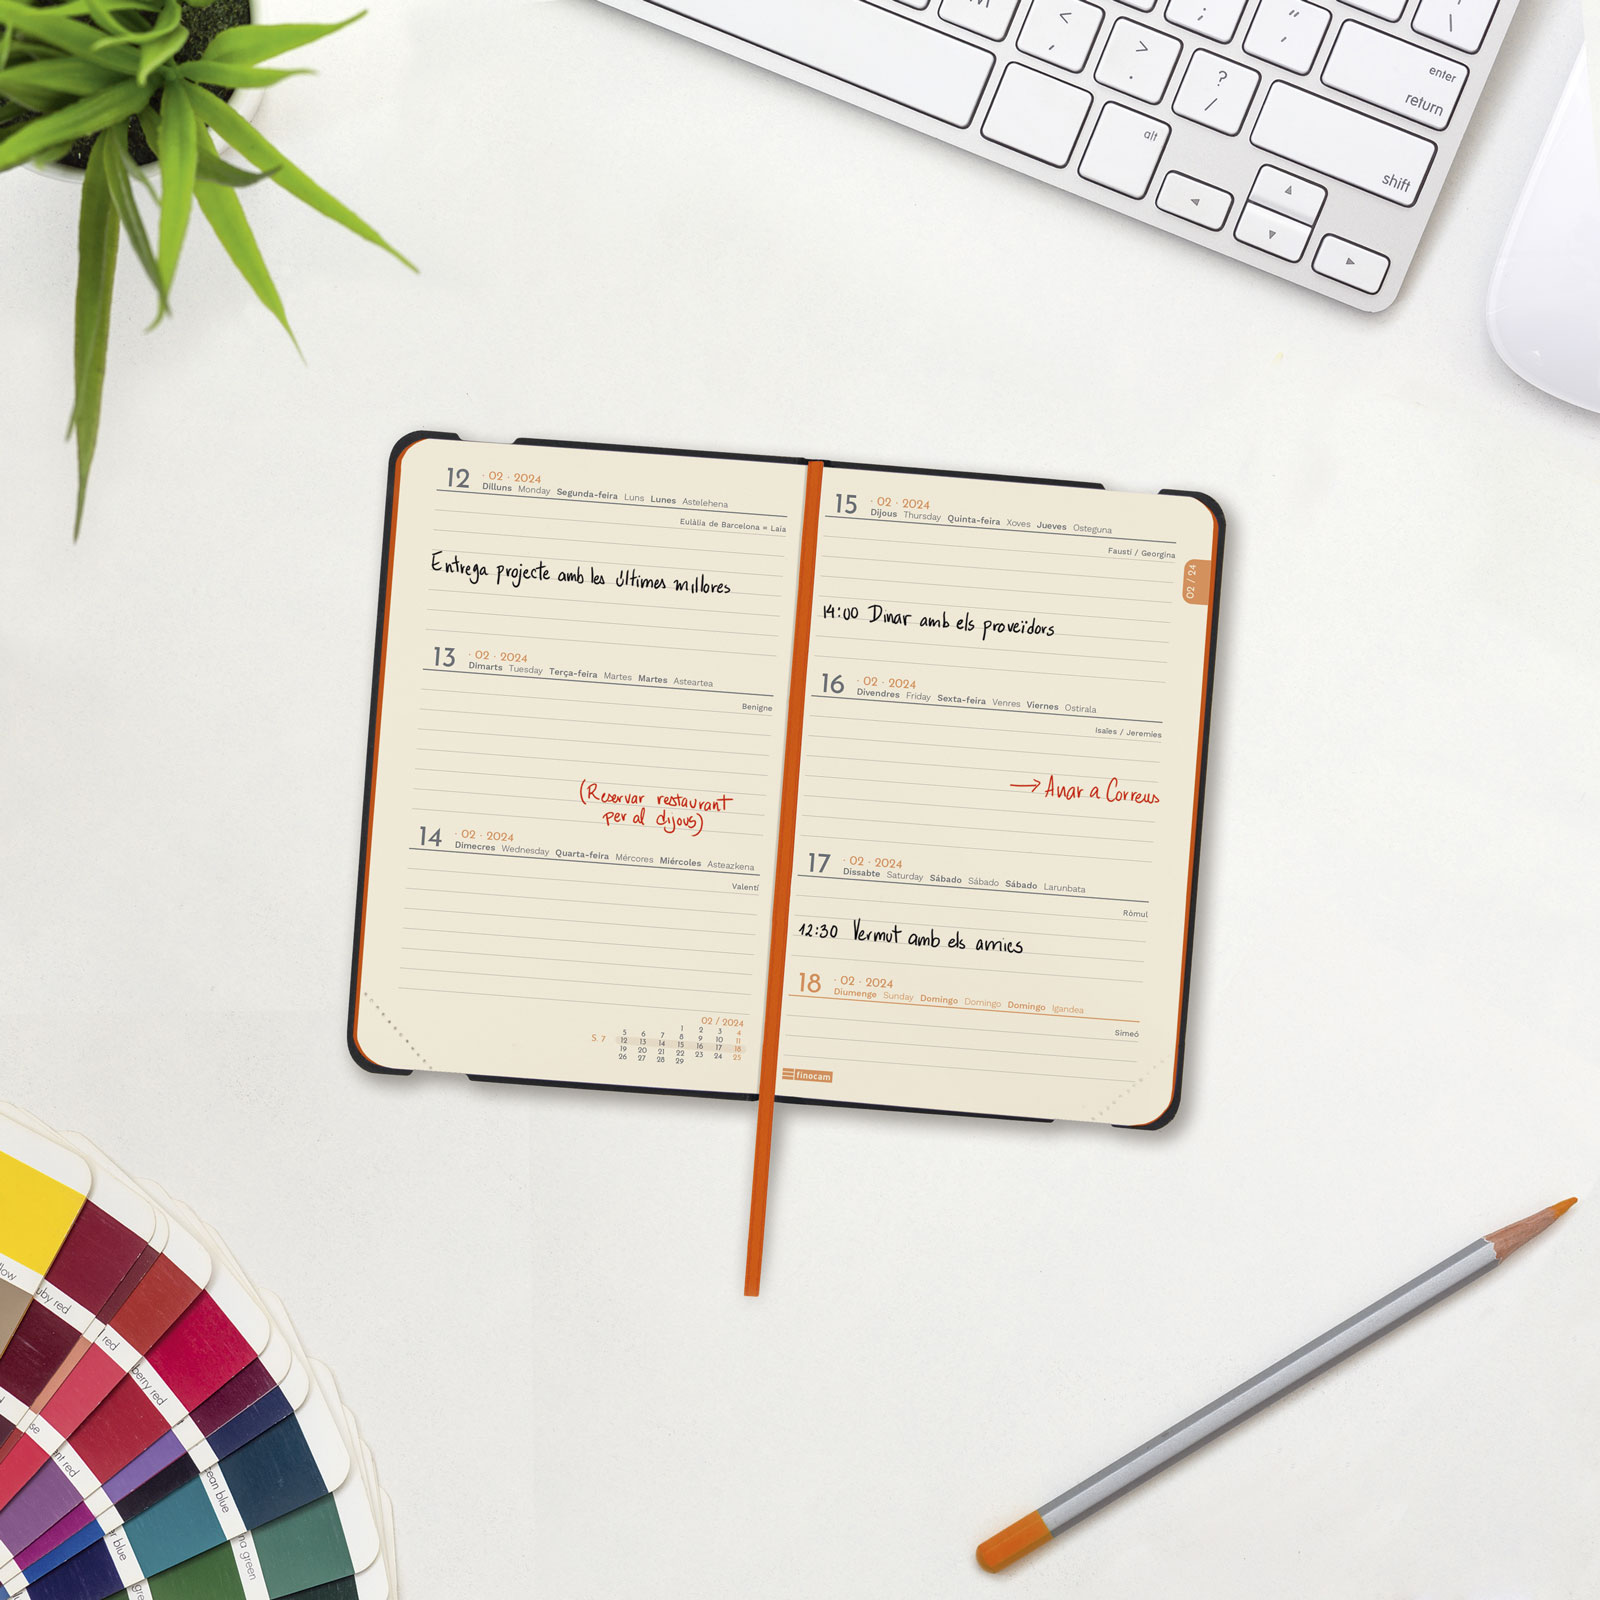 M
<
,
>
.
:
;
"
,
?
/
|
\
enter
return
alt
shift
12 · 02 · 2024
Dilluns Monday Segunda-feira Luns Lunes Astelehena
Eulàlia de Barcelona = Laia
Entrega projecte amb les últimes millores
13 · 02 · 2024
Dimarts Tuesday Terça-feira Martes Martes Asteartea
Benigne
(Reservar restaurant
per al dijous)
14 · 02 · 2024
Dimecres Wednesday Quarta-feira Mércores Miércoles Asteazkena
Valentí
02 / 2024
1 2 3 4
5 6 7 8 9 10 11
S. 7 12 13 14 15 16 17 18
19 20 21 22 23 24 25
26 27 28 29
15 · 02 · 2024
Dijous Thursday Quinta-feira Xoves Jueves Osteguna
Faustí / Georgina
02 / 24
14:00 Dinar amb els proveïdors
16 · 02 · 2024
Divendres Friday Sexta-feira Venres Viernes Ostirala
Isaïes / Jeremies
→ Anar a Correus
17 · 02 · 2024
Dissabte Saturday Sábado Sábado Sábado Larunbata
Ròmul
12:30 Vermut amb els amics
18 · 02 · 2024
Diumenge Sunday Domingo Domingo Domingo Igandea
Simeó
finocam
low
uby red
red
berry red
se
nt red
ean blue
r blue
na green
gre